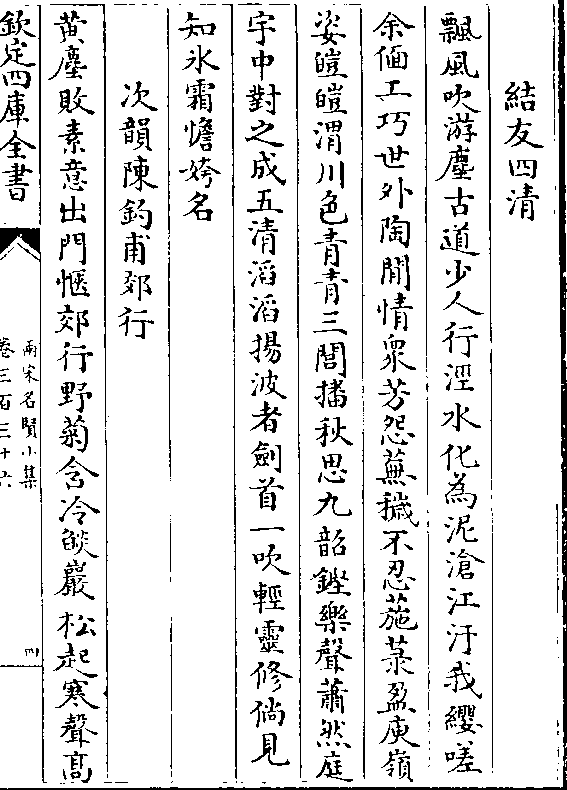 結友四清
飄風吹游塵古道少人行涇水化為泥滄江汙我纓嗟
余偭工巧世外陶閒情衆芳怨蕪穢不忍葹菉盈庾嶺
姿皚皚渭川色青青三閭播秋思九韶鏗樂聲蕭然庭
宇中對之成五清滔滔揚波者劍首一吹輕靈修倘見
知氷霜憺姱名
次韻陳鈞甫郊行
黄塵敗素意出門愜郊行野菊含冷燄巖松起寒聲高
欽定四庫全書
兩宋名賢小集
卷三百三十六
四